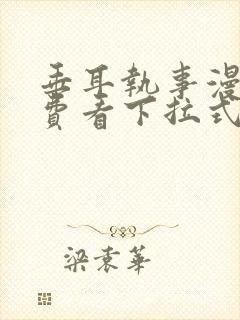 垂耳執事漫
費看下拉式
梁袁華